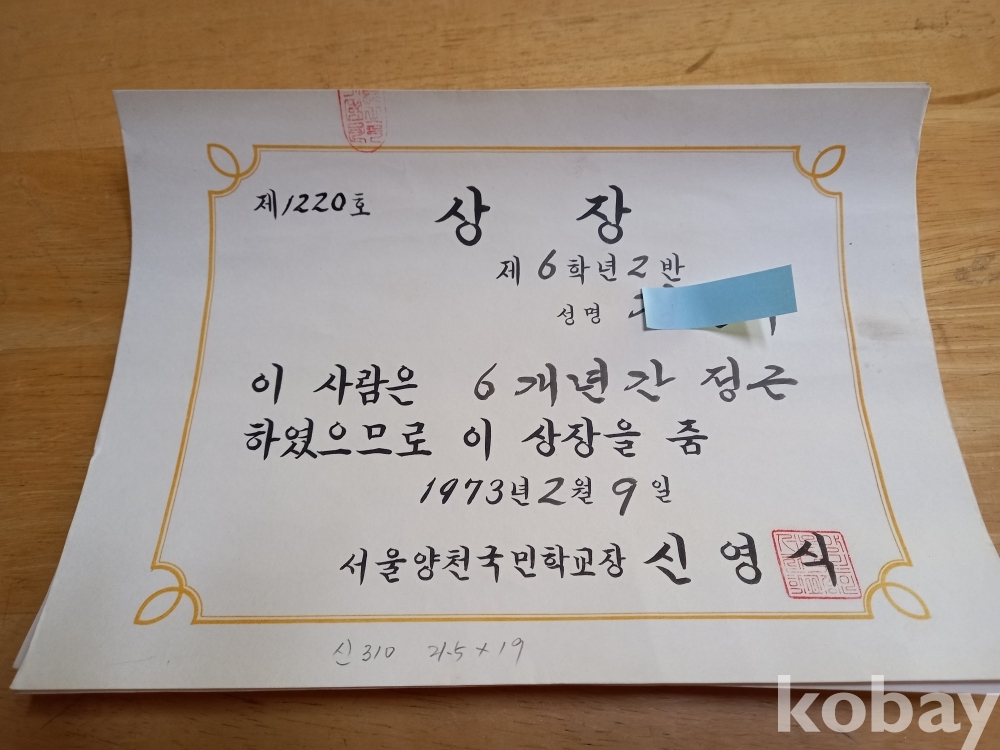 제1220호
상 장
제 6 학년 2 반
성명
이 사람은 6 개년간 정근
하였으므로 이 상장을 줌
1973년 2월 9일
서울양천국민학교장 신영식
신310 21.5 x 19
kobay